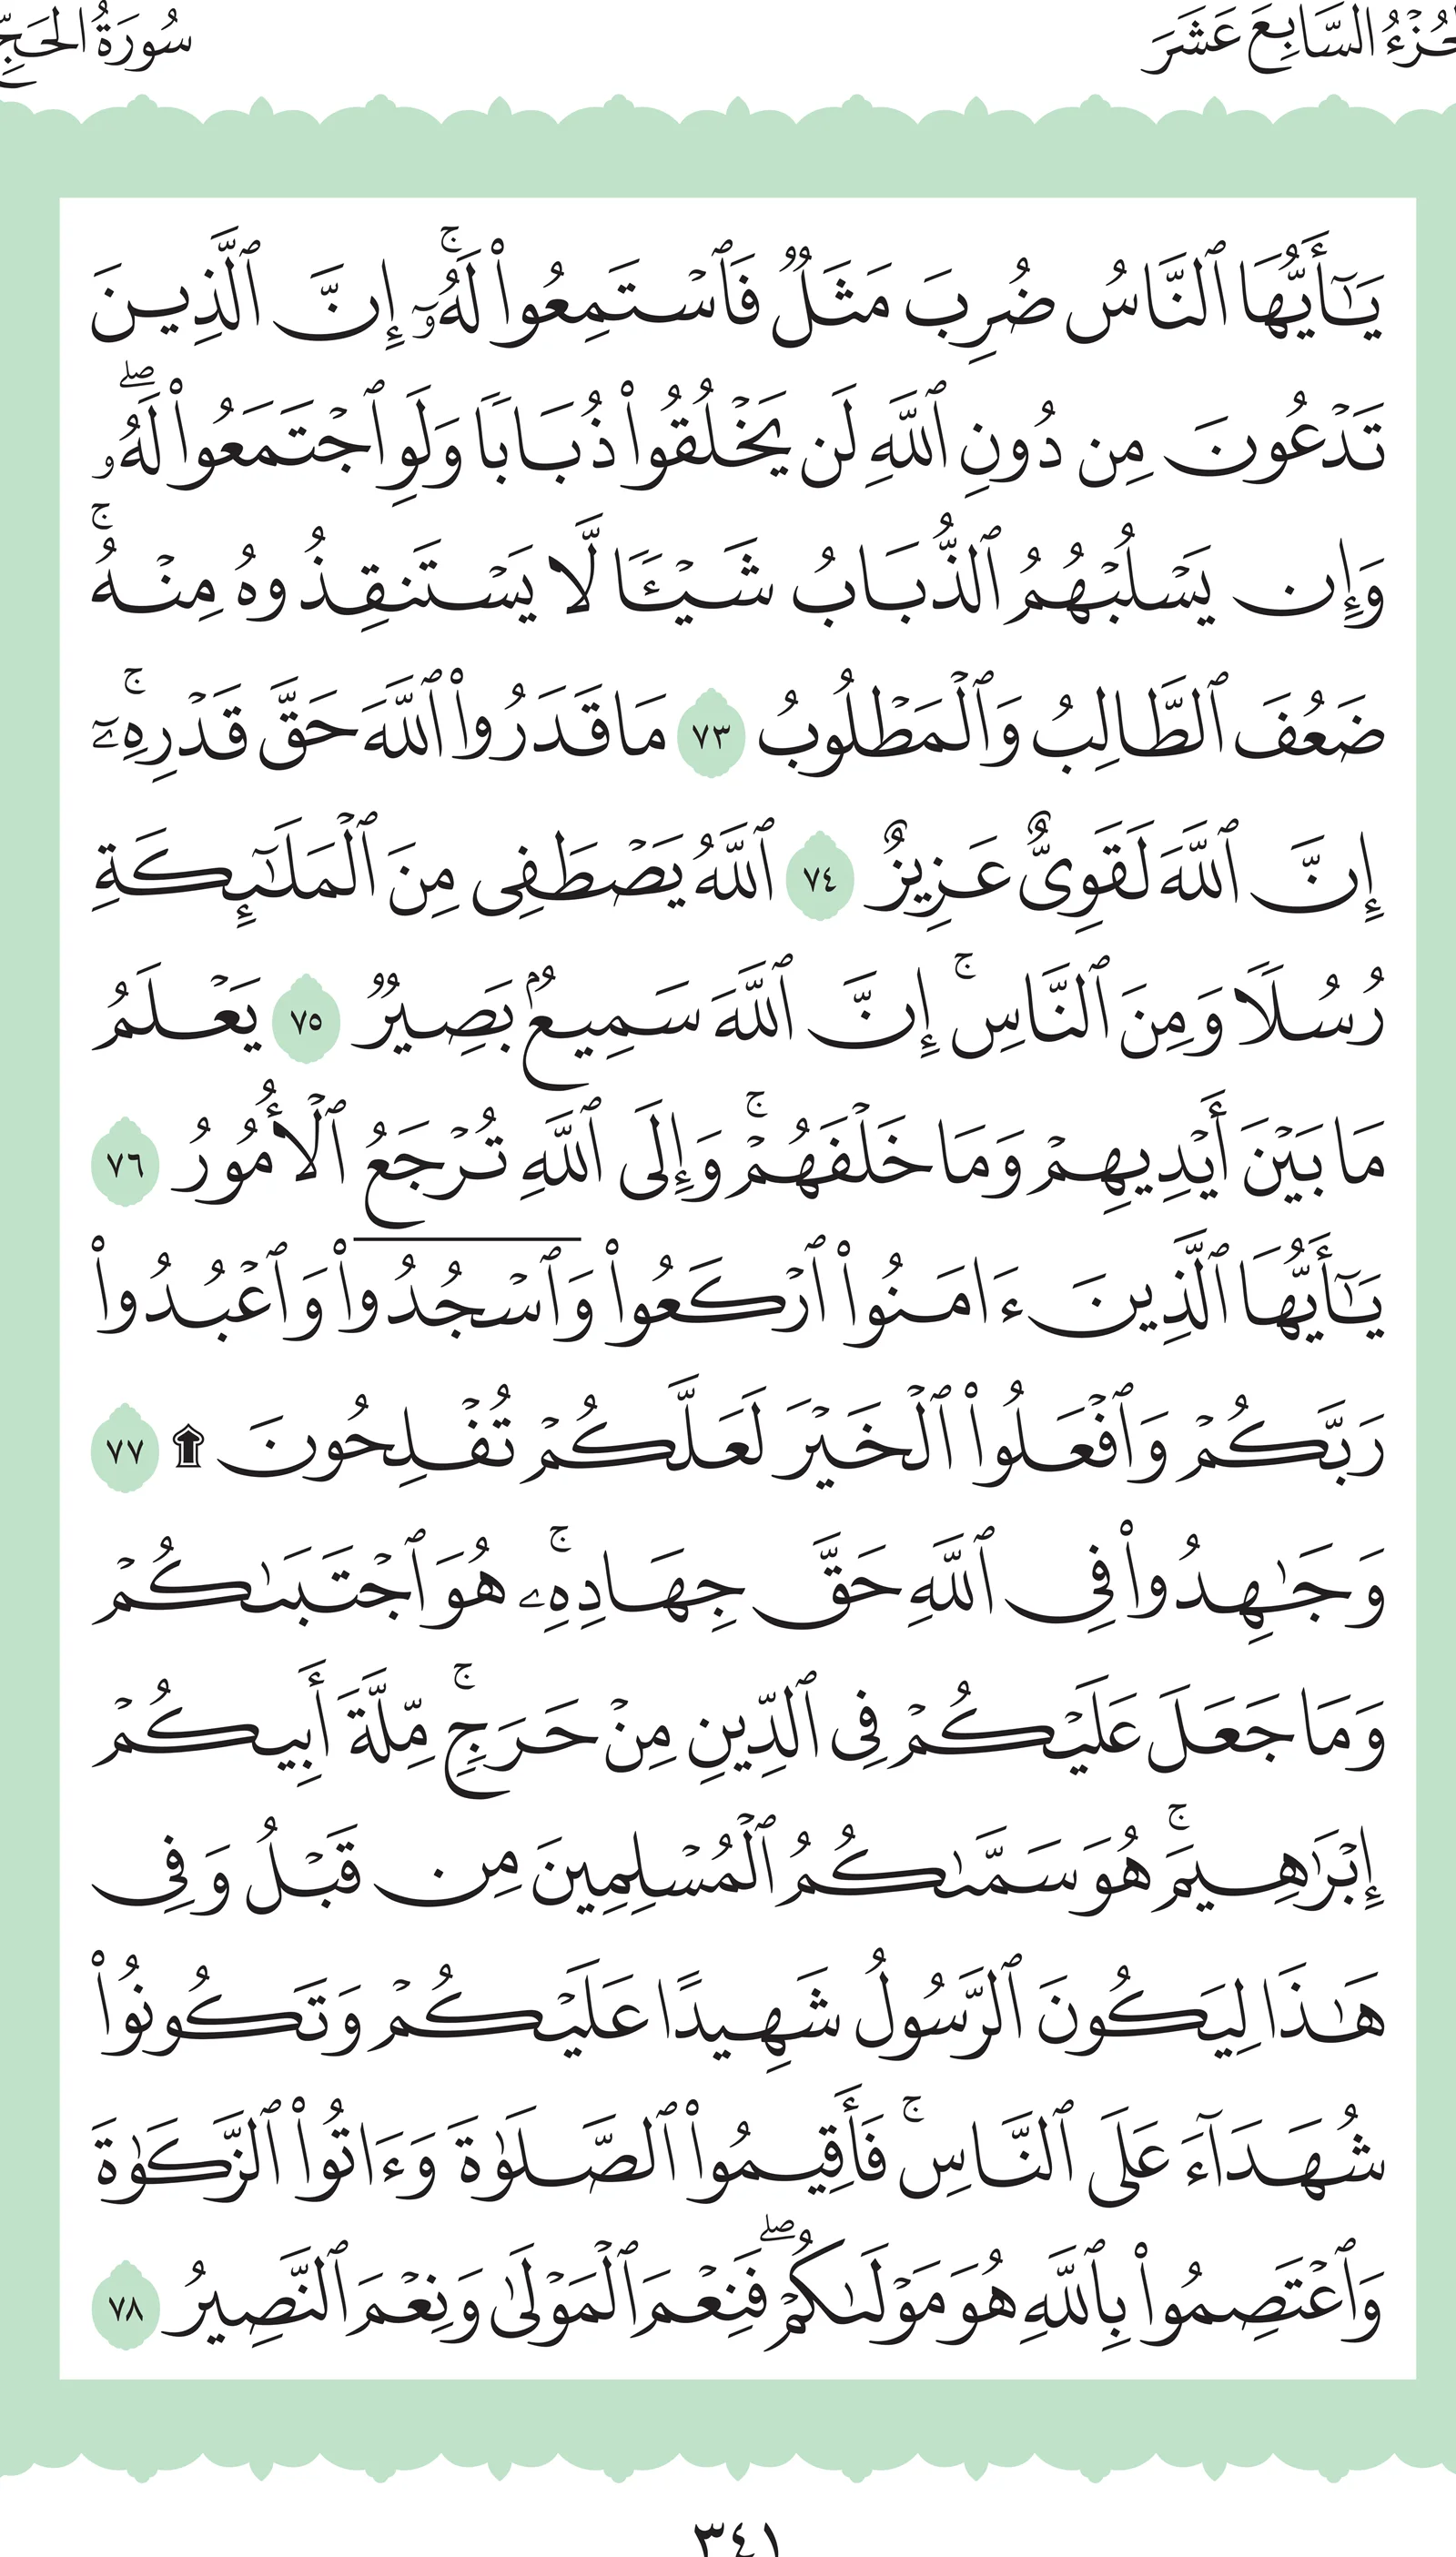 الجُزْءُ السَّابِعَ عَشَرَ
سُورَةُ الحَجِّ
يَـٰٓأَيُّهَا ٱلنَّاسُ ضُرِبَ مَثَلٌ فَٱسْتَمِعُوا۟ لَهُۥٓ ۚ إِنَّ ٱلَّذِينَ
تَدْعُونَ مِن دُونِ ٱللَّهِ لَن يَخْلُقُوا۟ ذُبَابًا وَلَوِ ٱجْتَمَعُوا۟ لَهُۥ ۖ
وَإِن يَسْلُبْهُمُ ٱلذُّبَابُ شَيْـًٔا لَّا يَسْتَنقِذُوهُ مِنْهُ ۚ
ضَعُفَ ٱلطَّالِبُ وَٱلْمَطْلُوبُ ٧٣ مَا قَدَرُوا۟ ٱللَّهَ حَقَّ قَدْرِهِۦٓ ۚ
إِنَّ ٱللَّهَ لَقَوِىٌّ عَزِيزٌ ٧٤ ٱللَّهُ يَصْطَفِى مِنَ ٱلْمَلَـٰٓئِكَةِ
رُسُلًا وَمِنَ ٱلنَّاسِ ۚ إِنَّ ٱللَّهَ سَمِيعٌۢ بَصِيرٌ ٧٥ يَعْلَمُ
مَا بَيْنَ أَيْدِيهِمْ وَمَا خَلْفَهُمْ ۚ وَإِلَى ٱللَّهِ تُرْجَعُ ٱلْأُمُورُ ٧٦
يَـٰٓأَيُّهَا ٱلَّذِينَ ءَامَنُوا۟ ٱرْكَعُوا۟ وَٱسْجُدُوا۟ وَٱعْبُدُوا۟
رَبَّكُمْ وَٱفْعَلُوا۟ ٱلْخَيْرَ لَعَلَّكُمْ تُفْلِحُونَ ۩ ٧٧
وَجَـٰهِدُوا۟ فِى ٱللَّهِ حَقَّ جِهَادِهِۦ ۚ هُوَ ٱجْتَبَىٰكُمْ
وَمَا جَعَلَ عَلَيْكُمْ فِى ٱلدِّينِ مِنْ حَرَجٍ ۚ مِّلَّةَ أَبِيكُمْ
إِبْرَٰهِيمَ ۚ هُوَ سَمَّىٰكُمُ ٱلْمُسْلِمِينَ مِن قَبْلُ وَفِى
هَـٰذَا لِيَكُونَ ٱلرَّسُولُ شَهِيدًا عَلَيْكُمْ وَتَكُونُوا۟
شُهَدَآءَ عَلَى ٱلنَّاسِ ۚ فَأَقِيمُوا۟ ٱلصَّلَوٰةَ وَءَاتُوا۟ ٱلزَّكَوٰةَ
وَٱعْتَصِمُوا۟ بِٱللَّهِ هُوَ مَوْلَىٰكُمْ ۖ فَنِعْمَ ٱلْمَوْلَىٰ وَنِعْمَ ٱلنَّصِيرُ ٧٨
٣٤١